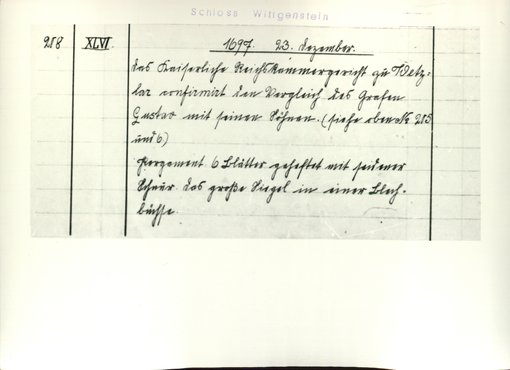 Schloss Wittgenstein
218 XLVI. 1697. 23. Dezember.
Das Kaiserliche Reichskammergericht zu Wetz-
lar confirmirt den Vergleich des Grafen
Gustav mit seinen Söhnen. (siehe oben No 215
und 6)
Pergament. 6 Blätter geheftet mit seidener
Schnur. Das große Siegel in einer Blech-
büchse.